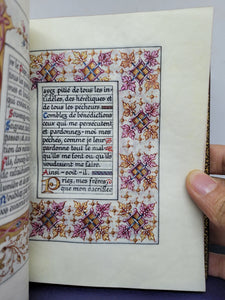 ayez pitié de tous les in-
fidèles, des hérétiques et
de tous les pécheurs.
Comblez de bénédictions
ceux qui me persécutent
et pardonnez-moi mes
péchés, comme je leur
pardonne tout le mal
qu'ils me font ou qu'ils
voudraient me faire.
Ainsi-soit-il.
Priez, mes Frères
que mon sacrifice